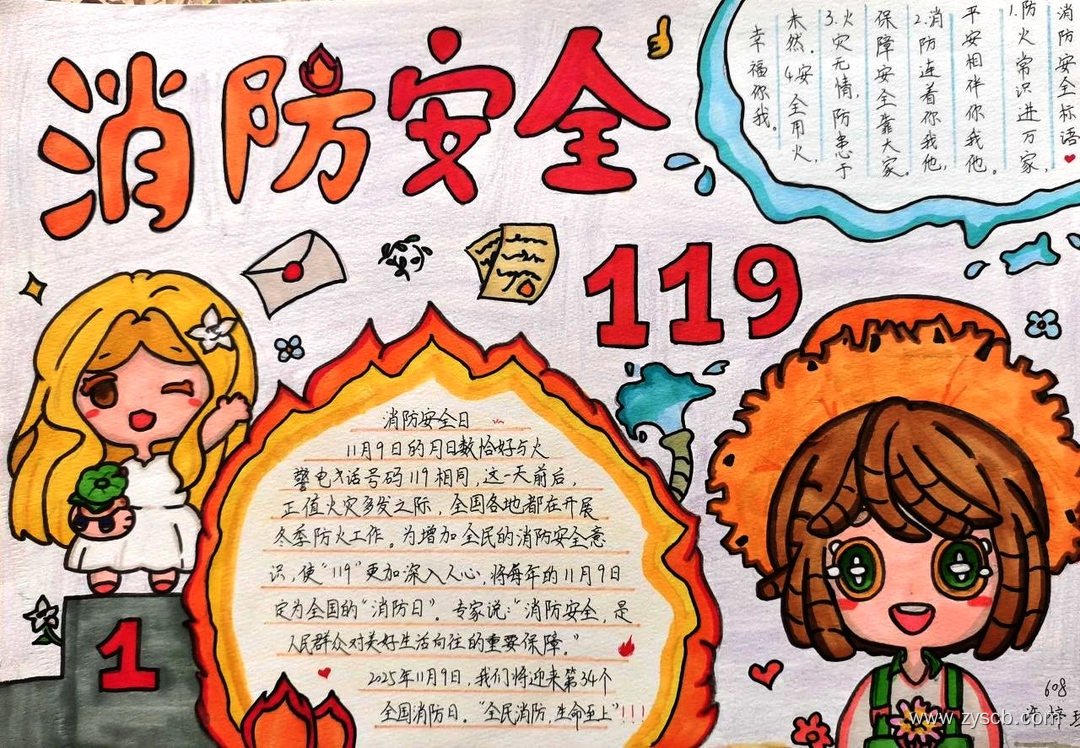 消防安全
119
消防安全标语
1.防火常识进万家,
平安相伴你我他。
2.消防连着你我他,
保障安全靠大家。
3.火灾无情,防患于
未然。4安全用火,
幸福你我。
消防安全日
11月9日的月日数恰好与火
警电话号码119相同,这一天前后,
正值火灾多发之际,全国各地都在开展
冬季防火工作。为增加全民的消防安全意
识,使“119”更加深入人心,将每年的11月9日
定为全国的“消防日”。专家说:“消防安全,是
人民群众对美好生活向往的重要保障。”
2025年11月9日,我们将迎来第34个
全国消防日。“全民消防,生命至上”!!!
1
608
www.zyscb.com